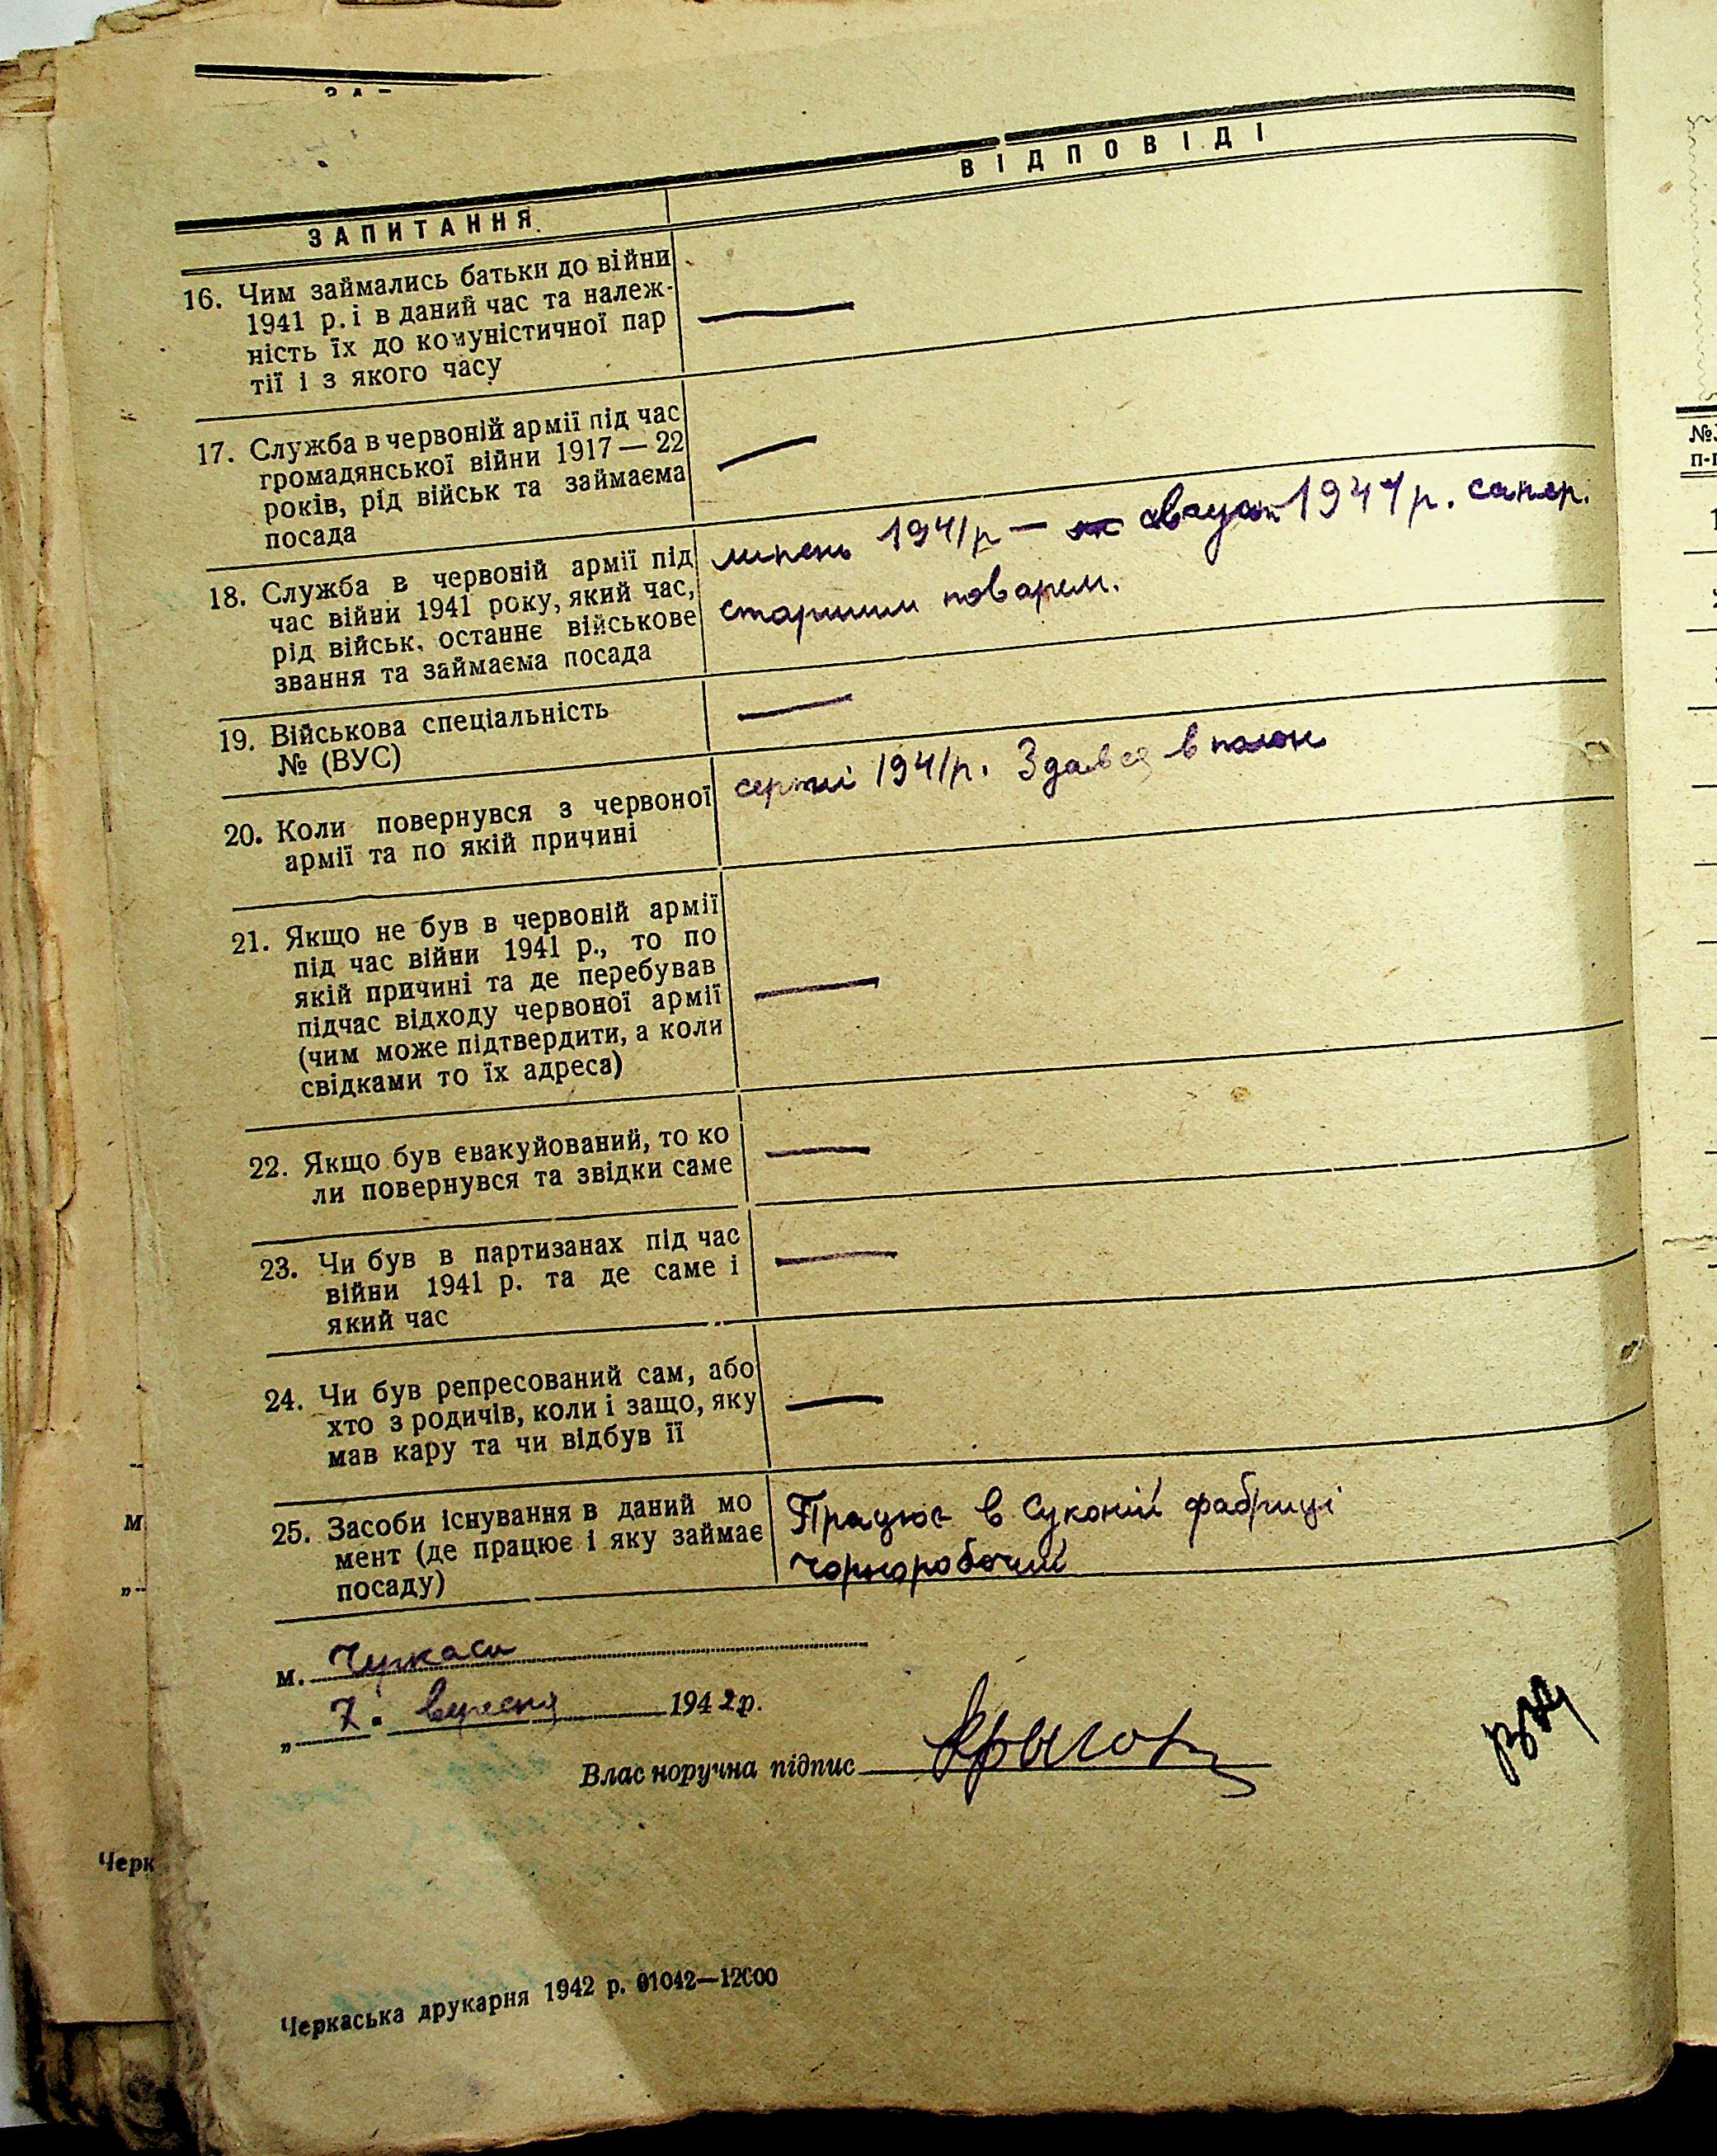 ЗАПИТАННЯ.
ВІДПОВІДІ
16. Чим займались батьки до війни
1941 р. і в даний час та належ-
ність їх до комуністичної пар
тії і з якого часу
—
17. Служба в червоній армії під час
громадянської війни 1917 — 22
років, рід військ та займаєма
посада
—
18. Служба в червоній армії під
час війни 1941 року, який час,
рід військ, останнє військове
звання та займаєма посада
липень 1941 р — август 1941 р. сапер.
старшим поваром.
19. Військова спеціальність
№ (ВУС)
—
20. Коли повернувся з червоної
армії та по якій причині
серпні 1941 р. Здався в полон
21. Якщо не був в червоній армії
під час війни 1941 р., то по
якій причині та де перебував
підчас відходу червоної армії
(чим може підтвердити, а коли
свідками то їх адреса)
—
22. Якщо був евакуйований, то ко
ли повернувся та звідки саме
—
23. Чи був в партизанах під час
війни 1941 р. та де саме і
який час
—
24. Чи був репресований сам, або
хто з родичів, коли і защо, яку
мав кару та чи відбув її
—
25. Засоби існування в даний мо
мент (де працює і яку займає
посаду)
Працює в Суконій фабриці
чорноробочий
м. Черкаси
„ 7. вересня 1942 р.
Влас норучна підпис
Черкаська друкарня 1942 р. 01042—12000
Черк
м
№
п-п